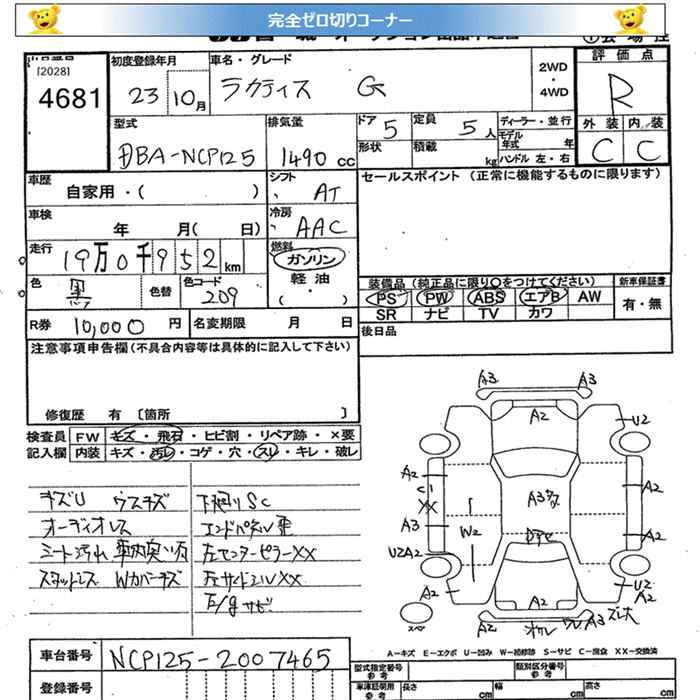 完全ゼロ切りコーナー
[2028]
4681
初度登録年月
23年10月
車名・グレード
ラクティス G
2WD
・
4WD
評価点
R
外装 内装
C C
型式
DBA-NCP125
排気量
1490 cc
ドア 5
形状
定員 5人
積載 kg
ディーラー・並行
モデル年式 年
ハンドル 左・右
車歴
自家用・( )
シフト
AT
セールスポイント (正常に機能するものに限ります)
車検
年 月( 日)
冷房
AAC
走行
19万0千952km
燃料
ガソリン
軽油
・( )
色
黒
色替
色コード
209
装備品 (純正品に限り○をつけてください)
PS PW ABS エアB AW
SR ナビ TV カワ
新車保証書
有・無
R券 10,000 円
名変期限 月 日
後日品
注意事項申告欄(不具合内容等は具体的に記入して下さい)
修復歴 有 [箇所 ]
検査員
記入欄
FW キズ・飛石・ヒビ割・リペア跡・×要
内装 キズ・汚レ・コゲ・穴・スレ・キレ・破レ
キズU ウスキズ
オーディオレス
シート汚れ
スタッドレス Wカバーキズ
下廻りSC
エンドパネル歪
左センターピラーXX
左サイドシルXX
サビ
A3 A3
A2
U2
A2
C1
XX
A3
U2A2
A2
W2
A3
A2
A2
U2
A2
A2
A2
A3
スペア
A-キズ E-エクボ U-凹み W-補修跡 S-サビ C-腐食 XX-交換済
車台番号
NCP125-2007465
登録番号
型式指定番号
参考
類別区分番号
参考
車庫証明用
参考
長さ cm
幅 cm
高さ cm